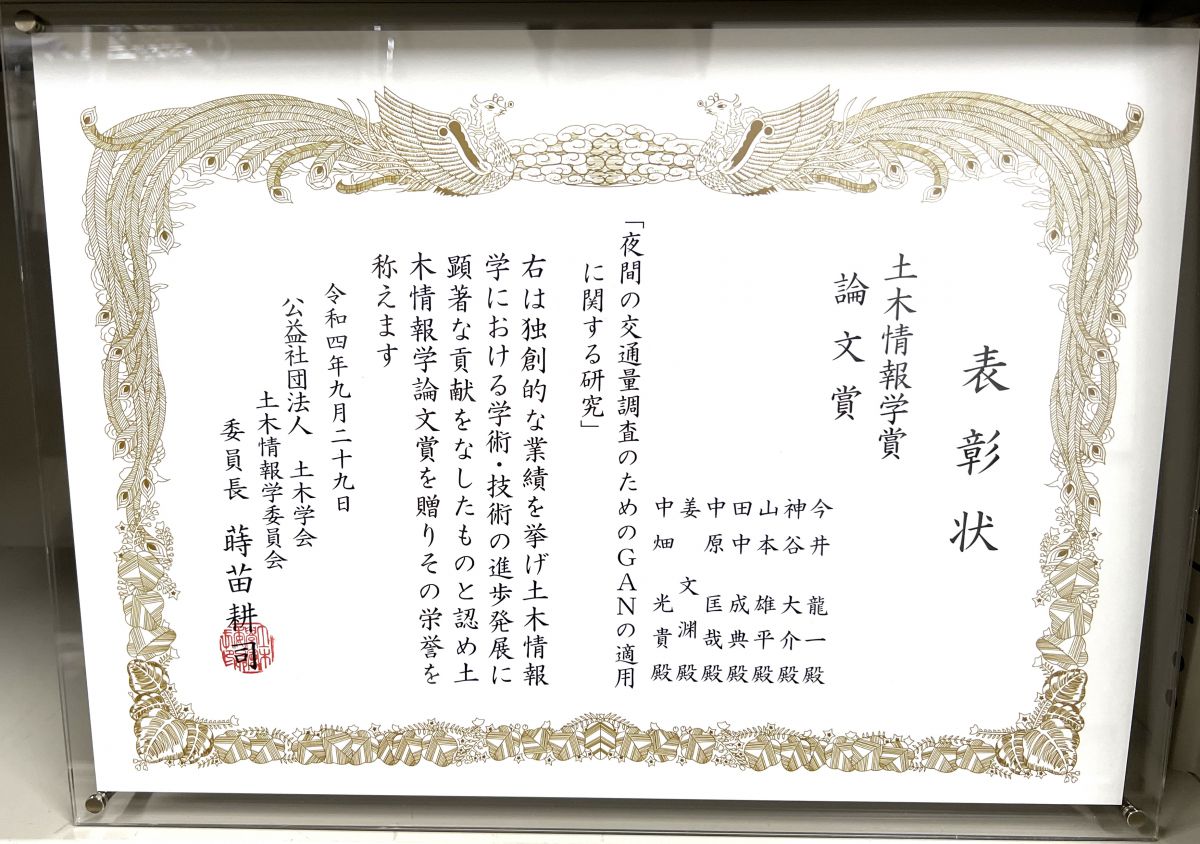 表彰状
土木情報学賞
論文賞
今井 龍一 殿
神谷 大介 殿
山本 雄平 殿
田中 成典 殿
中原 匡哉 殿
姜 文渊 殿
中畑 光貴 殿
「夜間の交通量調査のためのGANの適用
に関する研究」
右は独創的な業績を挙げ土木情報
学における学術・技術の進歩発展に
顕著な貢献をなしたものと認め土
木情報学論文賞を贈りその栄誉を
称えます
令和四年九月二十九日
公益社団法人 土木学会
土木情報学委員会
委員長 蒔苗耕司